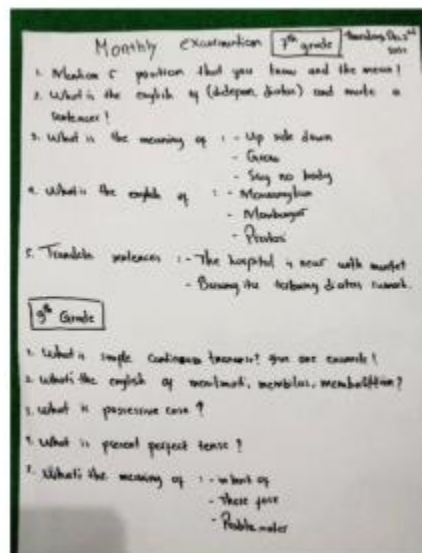 Monthly examination 7th grade
1. Mention 5 position that you know and the mean!
2. What is the english of (didepan, diatas) and make a
sentences!
3. What is the meaning of : - Up side down
- Grow
- Say no body
4. What is the english of : - Menenangkan
-
-
5. Translate sentences : - The hospital is near with market
- Burung itu terbang diatas rumah.
9th Grade
1. What is simple continuous tense? give one example!
2. What's the english of menikmati, membilas,
3. What is possessive case?
4. What is present perfect tense?
5. What's the meaning of : - in front of
- There fore
-